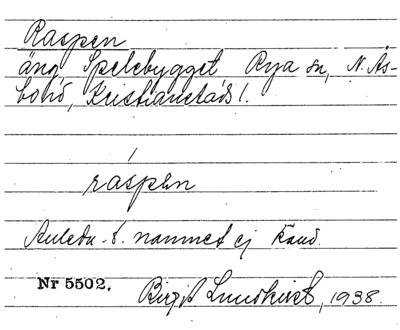 Raspen
äng, Spelebygget, Rya sn, N. Ås-
bohd, Kristianstads l.
ráspən
Anledn. t. namnet ej känd.
Nr 5502. Birgit Lundkvist, 1938.